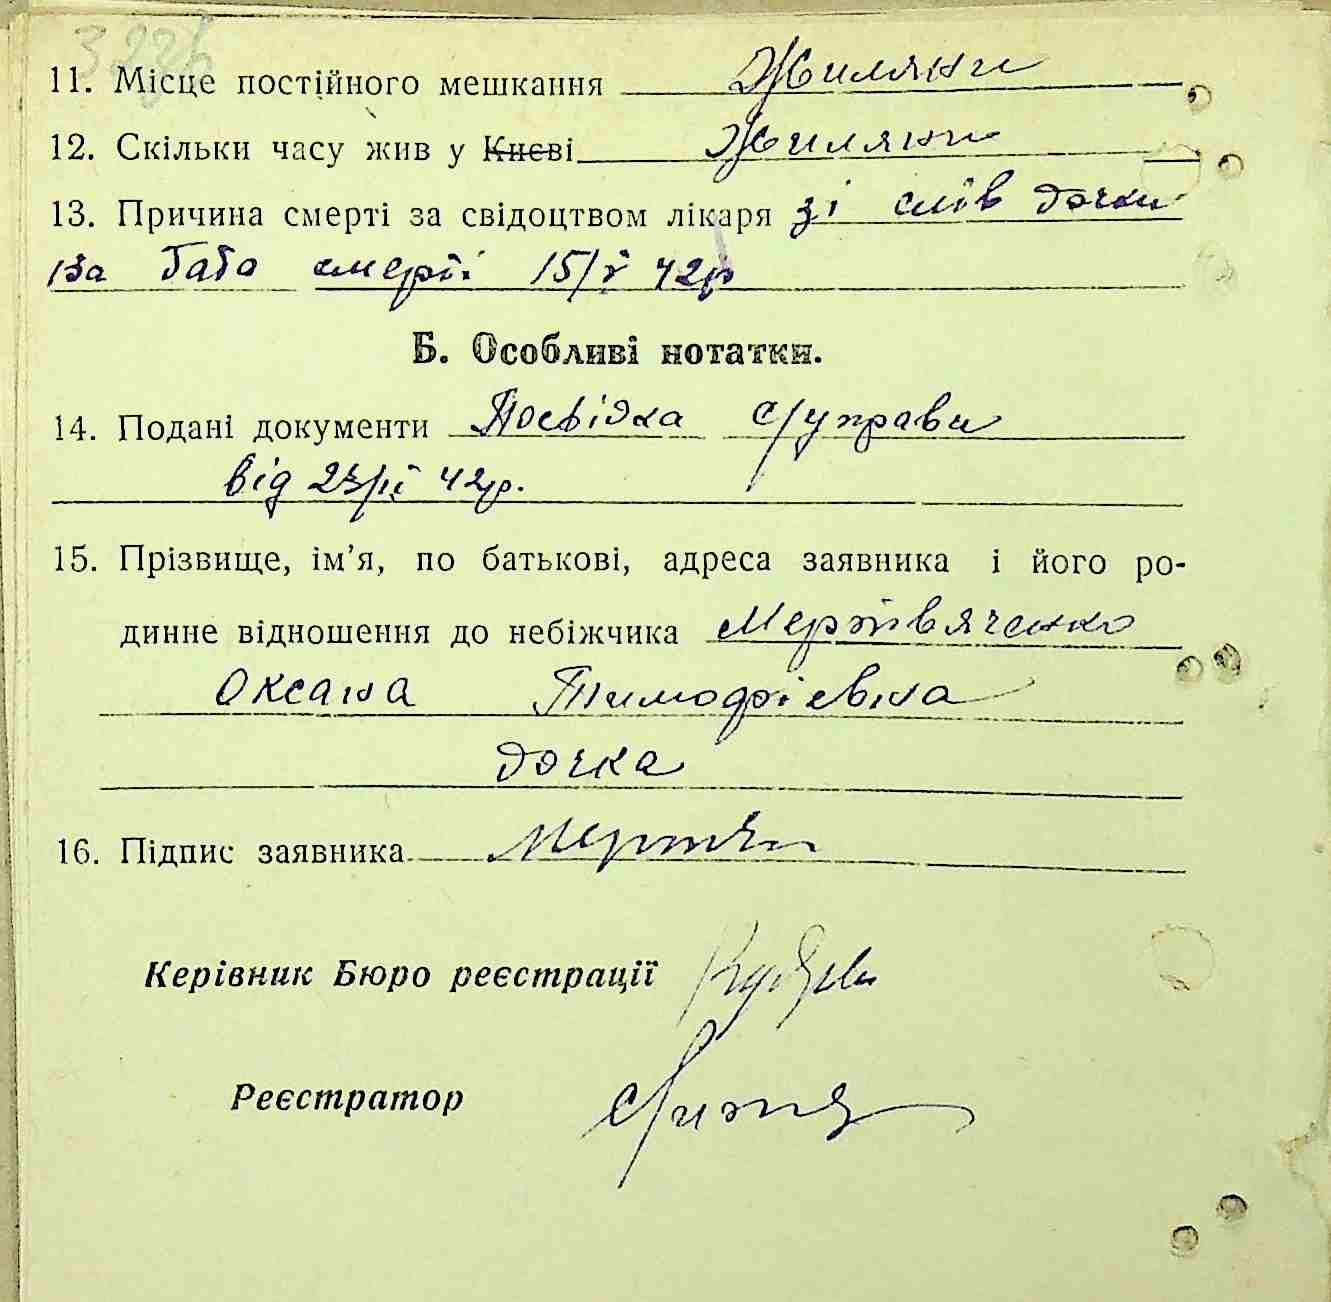 11. Місце постійного мешкання Жиляни
12. Скільки часу жив у Києві Жиляни
13. Причина смерті за свідоцтвом лікаря зі слів дочки
смерті 15/V 42р
Б. Особливі нотатки.
14. Подані документи Посвідка с/управи
від 23/VI 42р.
15. Прізвище, ім’я, по батькові, адреса заявника і його ро-
динне відношення до небіжчика Мертвяченко
Оксана Тимофієвна
дочка
16. Підпис заявника
Керівник Бюро реєстрації
Реєстратор